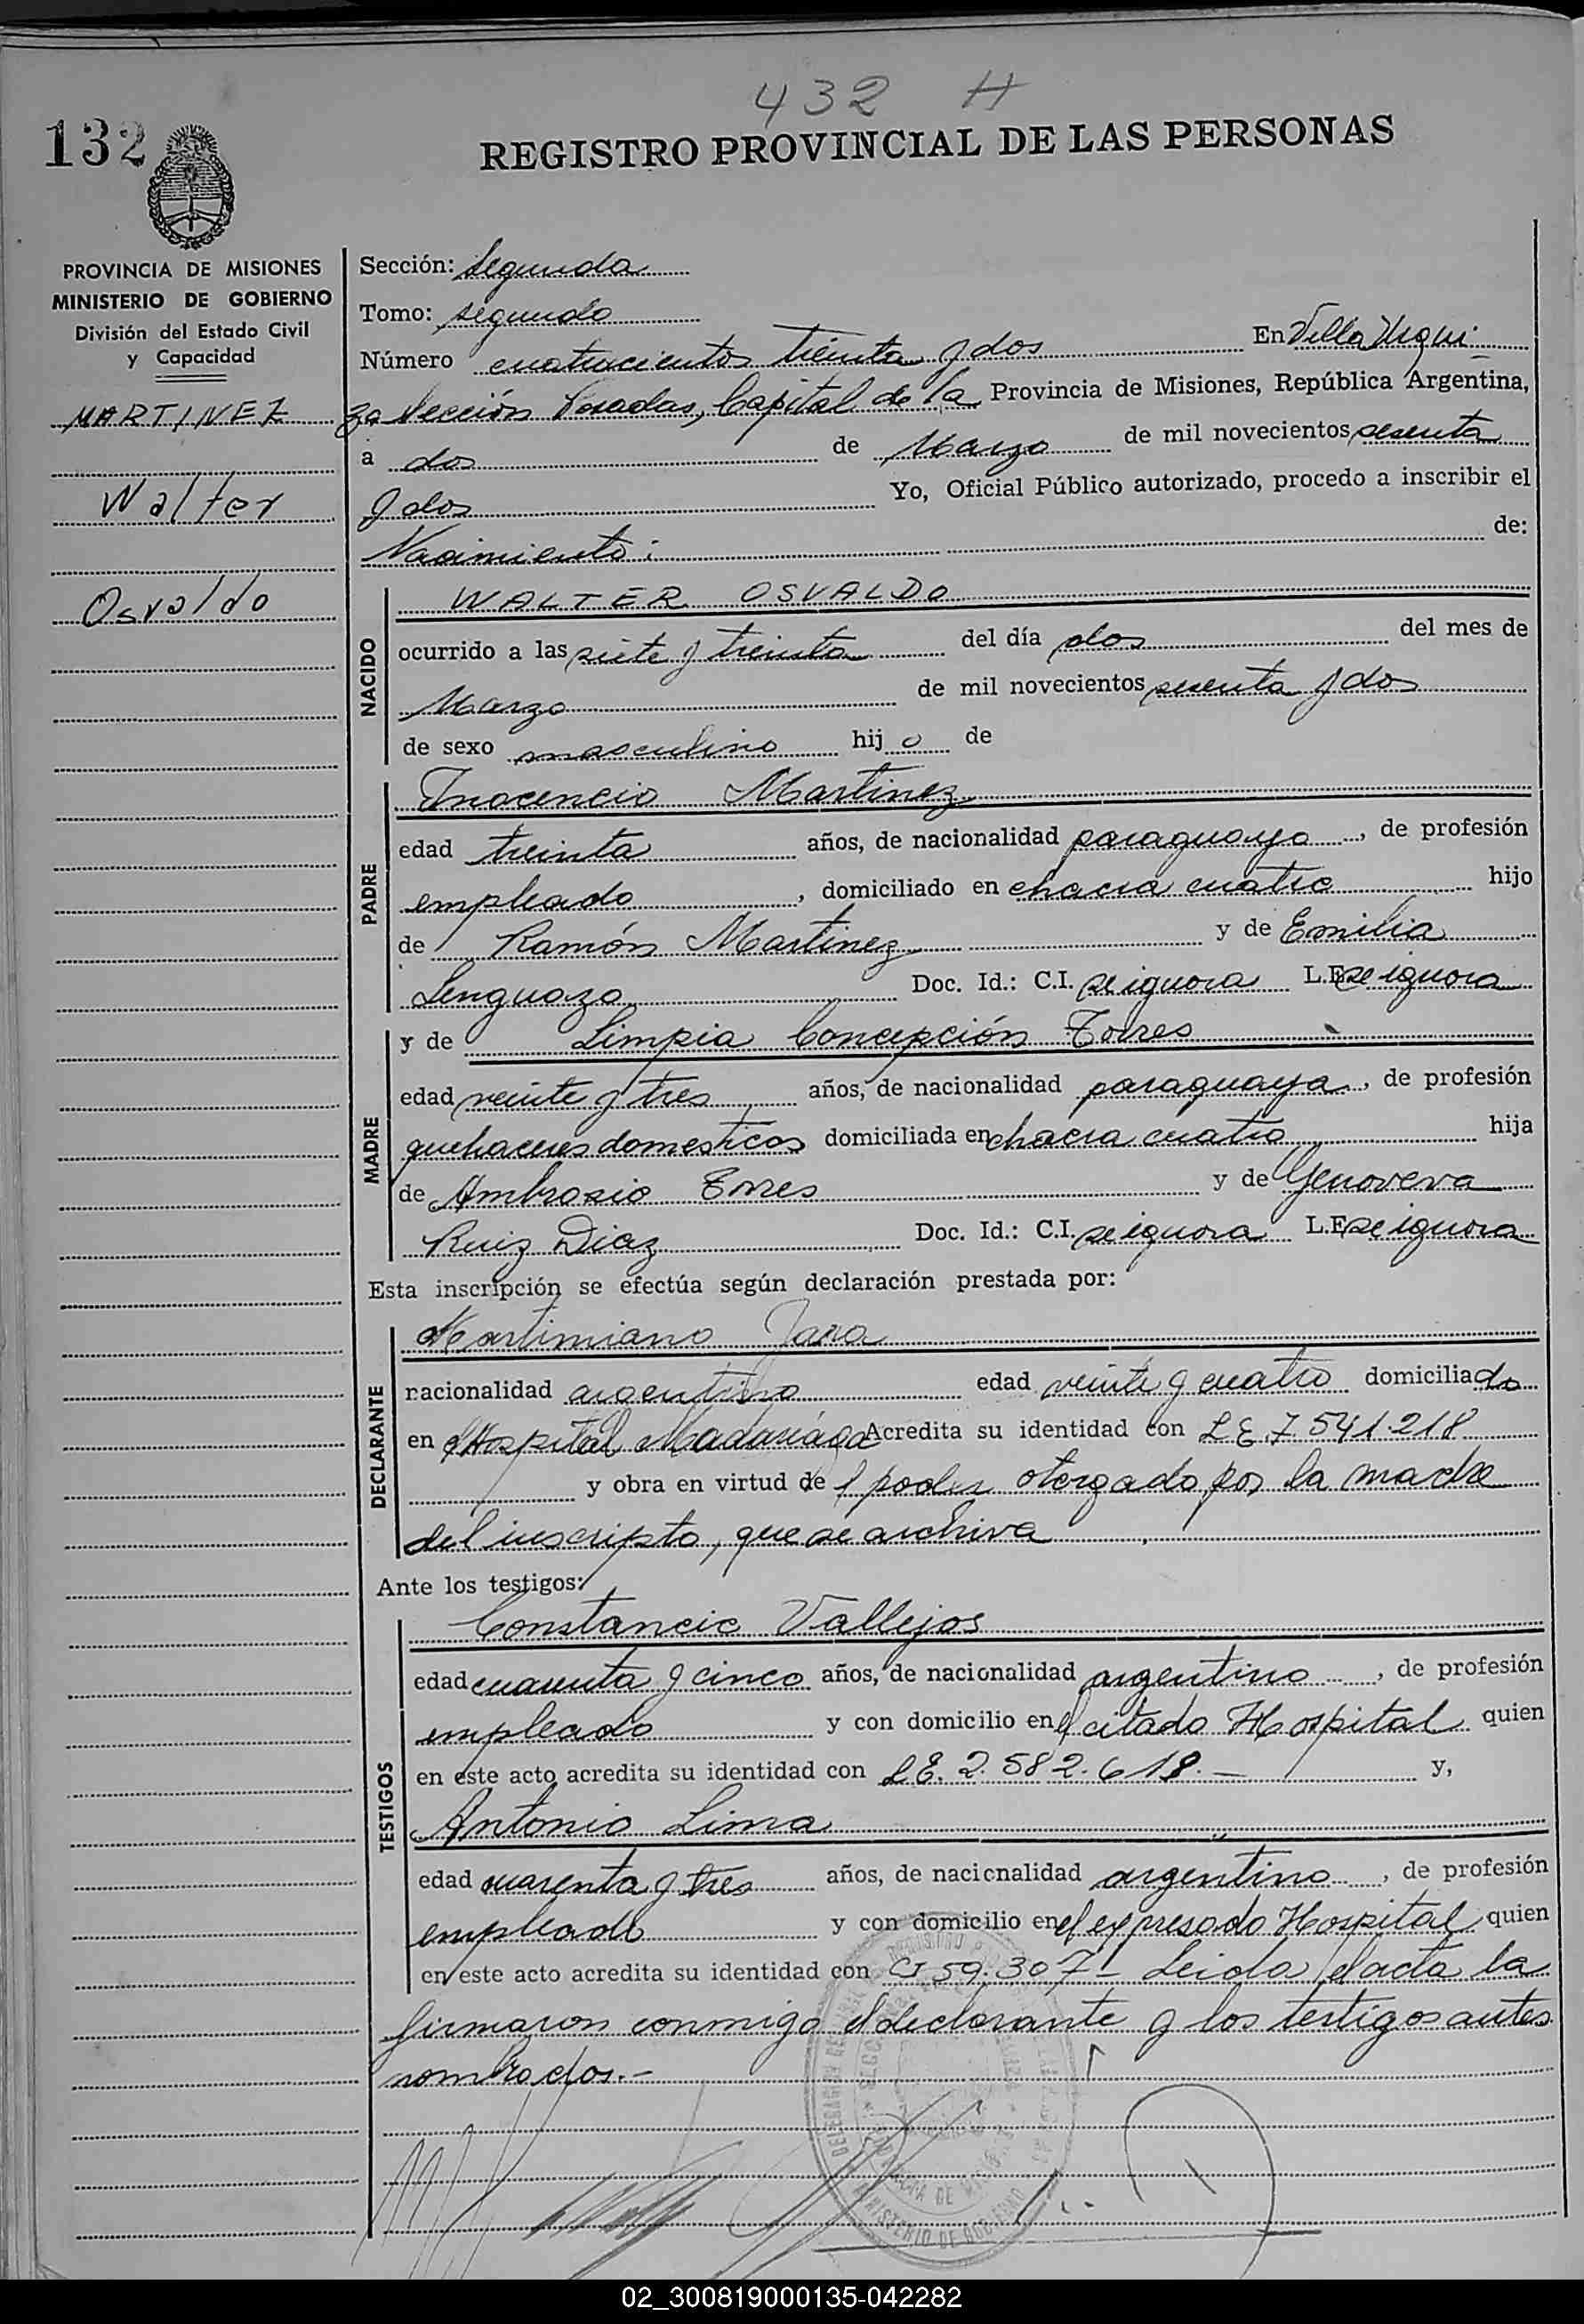 432 H
132
REGISTRO PROVINCIAL DE LAS PERSONAS
PROVINCIA DE MISIONES
MINISTERIO DE GOBIERNO
División del Estado Civil
y Capacidad
MARTINEZ
Walter
Osvaldo
Sección: Segunda
Tomo: segundo
Número cuatrocientos treinta y dos En Villa Urqui-
za Sección Posadas, Capital de la Provincia de Misiones, República Argentina,
a dos de Marzo de mil novecientos sesenta
y dos Yo, Oficial Público autorizado, procedo a inscribir el
Nacimiento: de:
NACIDO
WALTER OSVALDO
ocurrido a las siete y treinta del día dos del mes de
Marzo de mil novecientos sesenta y dos
de sexo masculino hijo de
PADRE
Inocencio Martinez
edad treinta años, de nacionalidad paraguayo, de profesión
empleado, domiciliado en chacra cuatro hijo
de Ramón Martinez y de Emilia
Lenguaza Doc. Id.: C.I. se ignora L.E. se ignora
MADRE
y de Limpia Concepción Torres
edad veinte y tres años, de nacionalidad paraguaya, de profesión
quehaceres domesticos domiciliada en chacra cuatro hija
de Ambrosio Torres y de Genoveva
Ruiz Diaz Doc. Id.: C.I. se ignora L.E. se ignora
Esta inscripción se efectúa según declaración prestada por:
DECLARANTE
Martimiano Jara
nacionalidad argentino edad veinte y cuatro domiciliado
en el Hospital Madariaga Acredita su identidad con L E 7.541.218
y obra en virtud de l poder otorgado por la madre
del inscripto, que se archiva
Ante los testigos:
TESTIGOS
Constancio Vallejos
edad cuarenta y cinco años, de nacionalidad argentino, de profesión
empleado y con domicilio en el citado Hospital quien
en este acto acredita su identidad con L E. 2.582.618.- y,
Antonio Lima
edad cuarenta y tres años, de nacionalidad argentino, de profesión
empleado y con domicilio en el expresado Hospital quien
en este acto acredita su identidad con CI 59.307- Leida el acta la
firmaron conmigo el declarante y los testigos antes
nombrados.-
MINISTERIO DE GOBIERNO
02_300819000135-042282